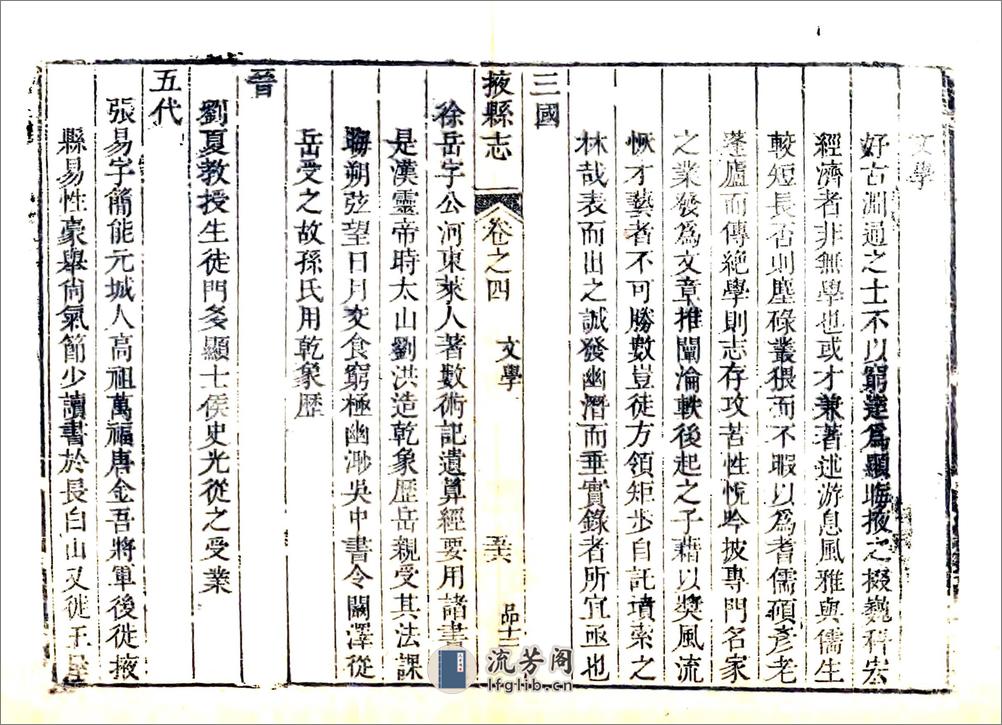 文學
好古淵通之士不以窮達爲顯晦掖之掇巍科宏
經濟者非無學也或才兼著述游息風雅與儒生
較短長否則塵碌叢猥而不暇以爲耆儒碩彥老
蓬廬而傳絕學則志存攻苦性悅吟披專門名家
之業發爲文章推闡淪軼後起之子藉以獎風流
恢才藝者不可勝數豈徒方領矩步自託墳索之
林哉表而出之誠發幽潛而垂實錄者所宜亟也
三國
掖縣志
卷之四
文學
五六
品士
徐岳字公河東萊人著數術記遺算經要用諸書
是漢靈帝時太山劉洪造乾象歷岳親受其法課
晦朔弦望日月交食窮極幽渺吳中書令闞澤從
岳受之故孫氏用乾象歷
晉
劉夏教授生徒門多顯士侯史光從之受業
五代
張易字簡能元城人高祖萬福唐金吾將軍後徙掖
縣易性豪舉尚氣節少讀書於長白山又徙王屋
流芳阁
lfglib.cn